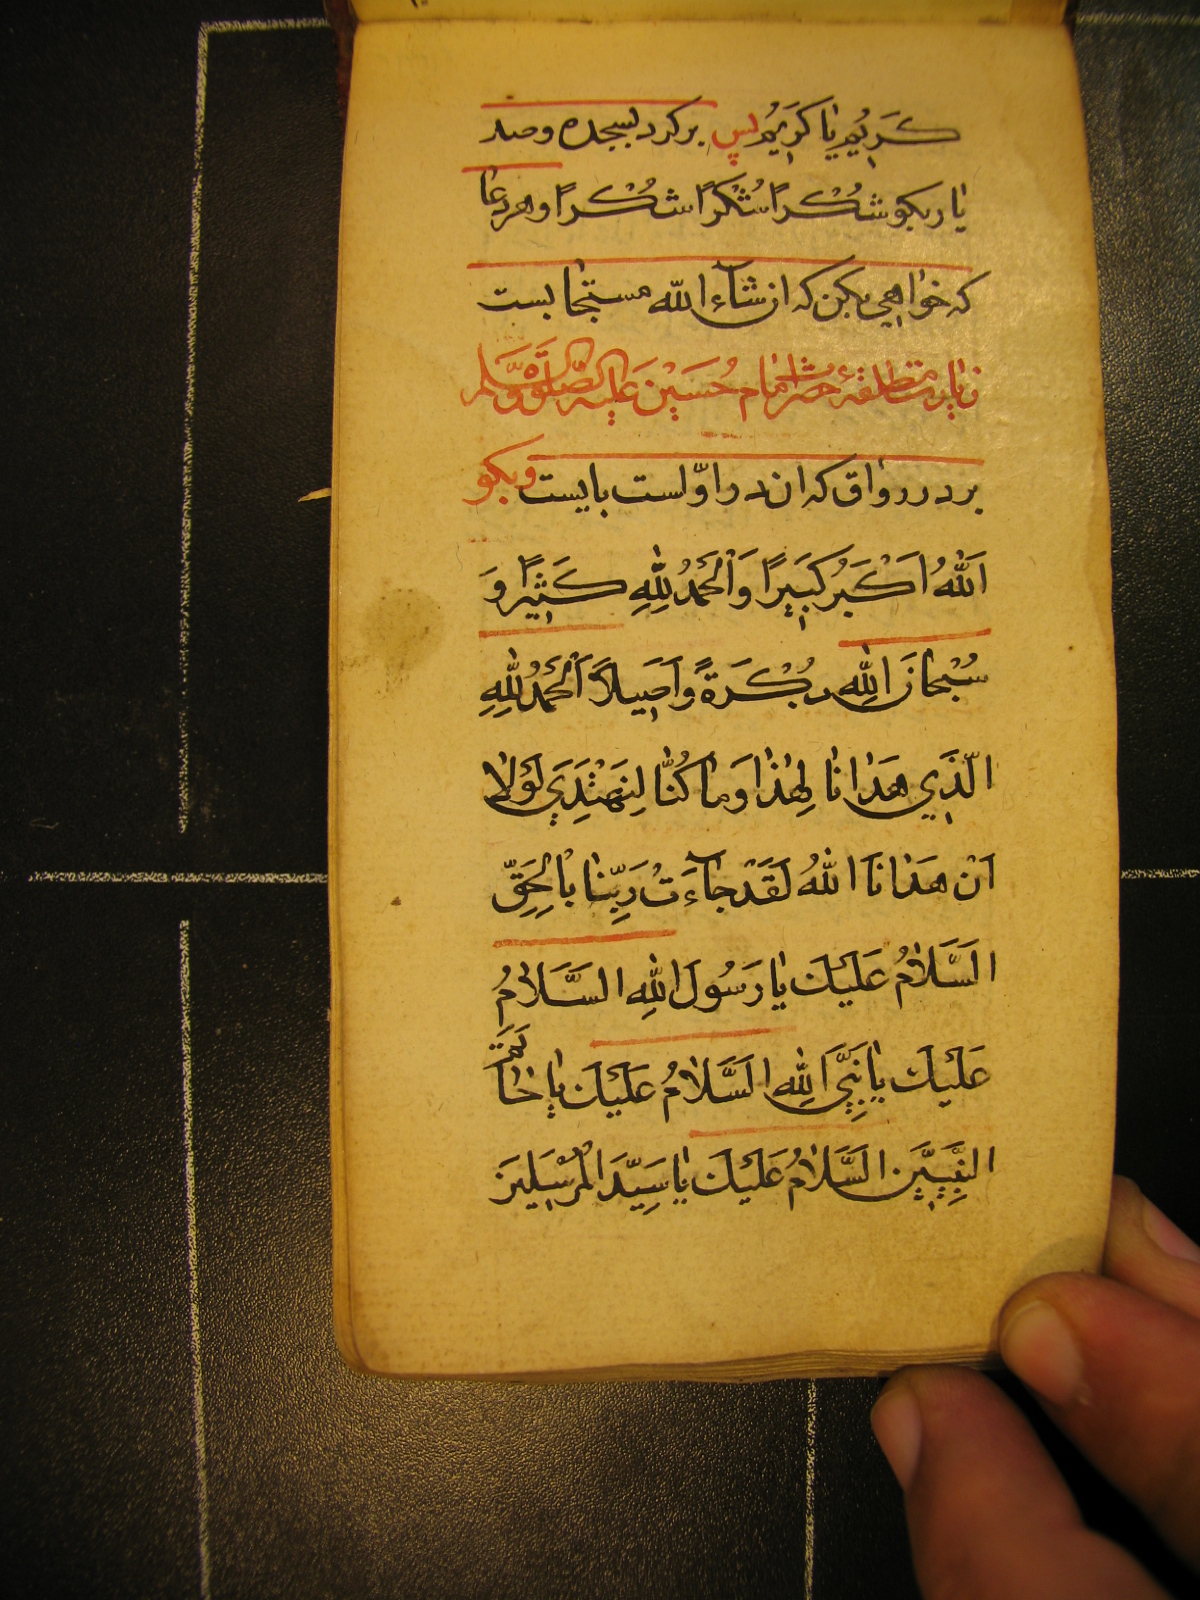 كَرِيْمُ يٰا كَرِيْمُ پس برکرد بسجده وصد
يٰا ربکو شُكْراً شُكْراً شُكْراً و هر دعا
که خواهي بکن که ان شآء الله مستجا بست
زيارت مطلقۀ حضرت امام حُسَيْن عَليه الصَّلوٰة وَالسَّلم
بر در رواق که ان در اوّلست بايست وبکو
اَللّٰهُ اَكْبَرُ كَبِيْراً وَالْحَمْدُ لِلّٰهِ كَثِيْراً وَ
سُبْحٰانَ اللّٰهِ بُكْرَةً وَاَصِيلاً اَلْحَمْدُ لِلّٰهِ
الَّذِي هَدٰانٰا لِهٰذٰا وَمٰا كُنّٰا لِنَهْتَدِيَ لَوْلٰا
اَنْ هَدٰانَا اللّٰهُ لَقَدْ جٰآءَتْ رَبِّنٰا بِالْحَقِّ
السَّلٰامُ عَلَيْكَ يٰا رَسُولَ اللّٰهِ السَّلٰامُ
عَلَيْكَ يٰا نَبِيَّ اللّٰهِ السَّلٰامُ عَلَيْكَ يٰا خٰاتَمَ
النَّبِيِّيْنَ السَّلٰامُ عَلَيْكَ يٰا سَيِّدَ الْمُرْسَلِيْنَ